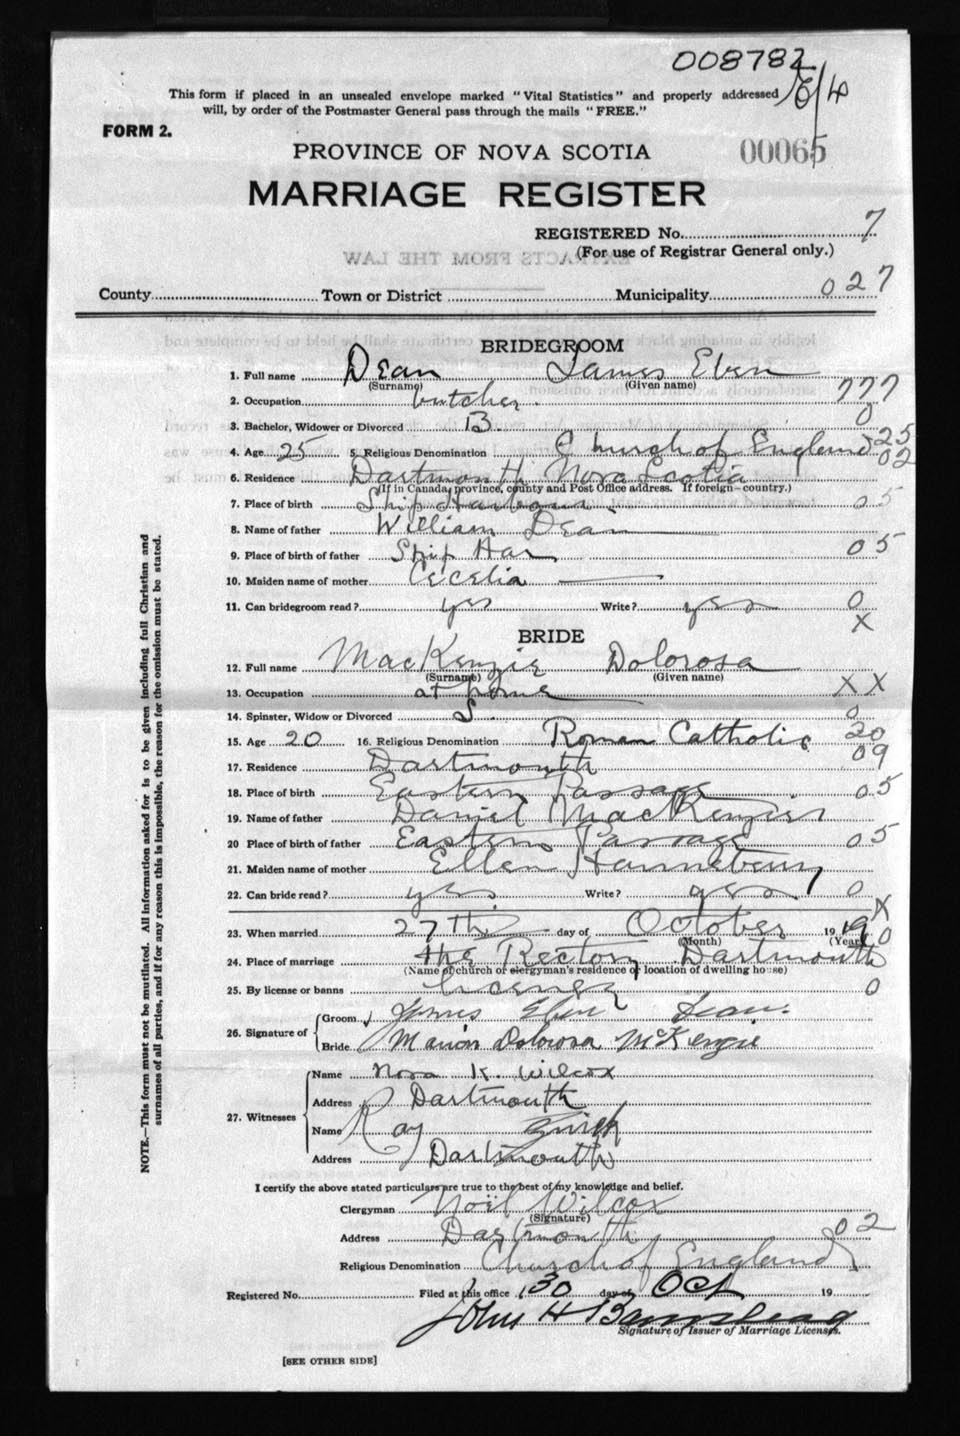 008782
This form if placed in an unsealed envelope marked "Vital Statistics" and properly addressed
will, by order of the Postmaster General pass through the mails "FREE."
FORM 2.
PROVINCE OF NOVA SCOTIA
00065
MARRIAGE REGISTER
REGISTERED No. 7
(For use of Registrar General only.)
EXTRACTS FROM THE LAW
County Town or District Municipality 027
BRIDEGROOM
1. Full name Dean James Eben
(Surname) (Given name)
2. Occupation butcher. 777
3. Bachelor, Widower or Divorced B. 0
4. Age 25 5. Religious Denomination Church of England 25
6. Residence Dartmouth Nova Scotia 02
(If in Canada, province, county and Post Office address. If foreign—country.)
7. Place of birth Ship Harbour 05
8. Name of father William Dean
9. Place of birth of father Ship Har 05
10. Maiden name of mother Cecelia
11. Can bridegroom read? yes Write? yes 0
X
BRIDE
12. Full name MacKenzie Dolorosa
(Surname) (Given name)
13. Occupation at home XX
14. Spinster, Widow or Divorced S. 0
15. Age 20 16. Religious Denomination Roman Catholic 20
17. Residence Dartmouth 09
18. Place of birth Eastern Passage 05
19. Name of father Daniel MacKenzie
20 Place of birth of father Eastern Passage 05
21. Maiden name of mother Ellen
22. Can bride read? yes Write? yes 0
X
23. When married 27th day of October 19
(Month) (Year)
24. Place of marriage the Rectory Dartmouth
(Name of church or clergyman's residence or location of dwelling house)
25. By license or banns license 0
26. Signature of Groom James Eben Dean.
Bride Marion Dolorosa McKenzie
27. Witnesses Name Nora K. Wilcox
Address Dartmouth
Name Ray
Address Dartmouth
I certify the above stated particulars are true to the best of my knowledge and belief.
Clergyman Noel Wilcox
(Signature)
Address Dartmouth 02
Religious Denomination Church of England
Registered No. Filed at this office 30 day of Oct 19
John H
Signature of Issuer of Marriage Licenses.
[SEE OTHER SIDE]
NOTE.—This form must not be mutilated. All information asked for is to be given including full Christian and
surnames of all parties, and if for any reason this is impossible, the reason for the omission must be stated.